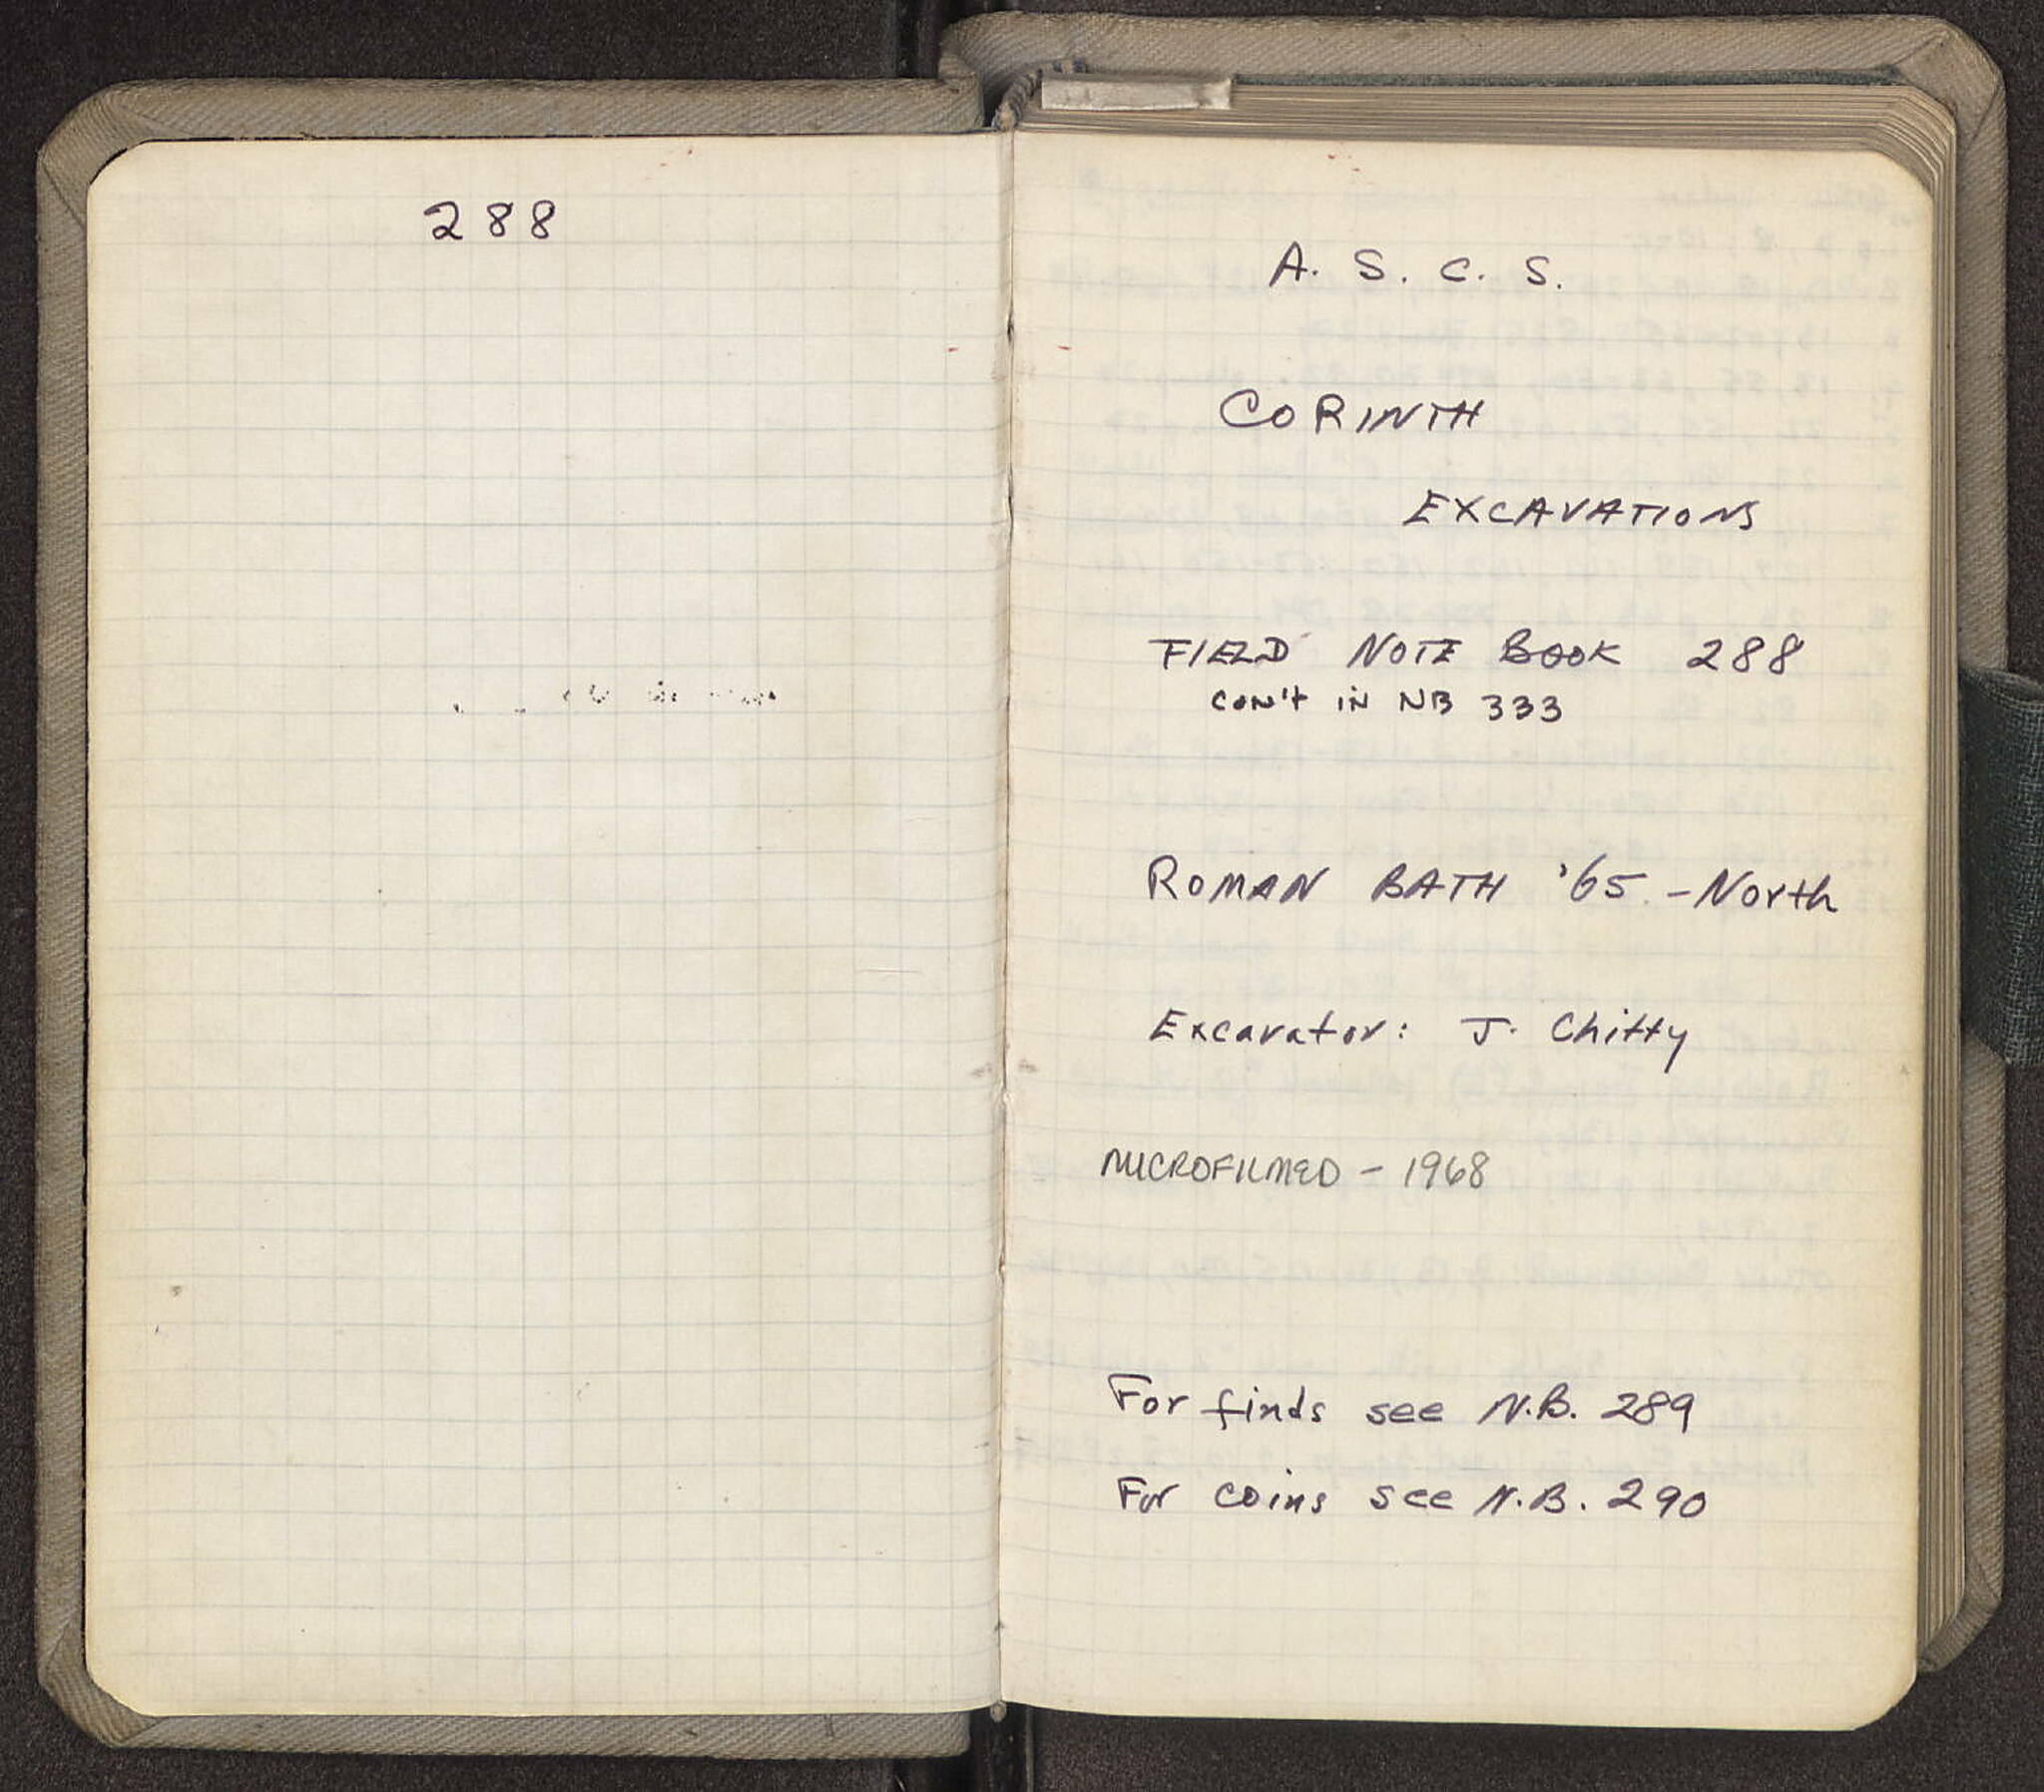 288
A. S. C. S.
CORINTH
EXCAVATIONS
FIELD NOTE BOOK 288
CON'T IN NB 333
ROMAN BATH '65 - North
Excavator: J. Chitty
MICROFILMED - 1968
For finds see N.B. 289
For coins see N.B. 290